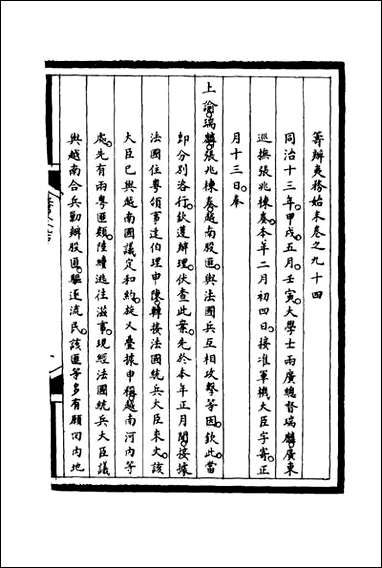 籌辦夷務始末卷之九十四
同治十三年。甲戌五月。壬寅。大學士兩廣總督瑞麟。廣東
巡撫張兆棟奏。本年二月初四日。接准軍機大臣字寄。正
月十三日。奉
上諭。瑞麟張兆棟奏。越南股匪。與法國兵互相攻擊等因。欽此。當
即分別咨行。欽遵辦理。伏查此案。先於本年正月間。接據
法國住粵領事達伯理申陳。轉接法國統兵大臣來文。該
大臣已與越南國議定和約。旋又疊據申稱。越南河內等
處。先有兩粵匪類。陸續逃往滋事。現經法國統兵大臣議
與越南合兵勦辦股匪。驅逐流民。該匪等多有願回內地